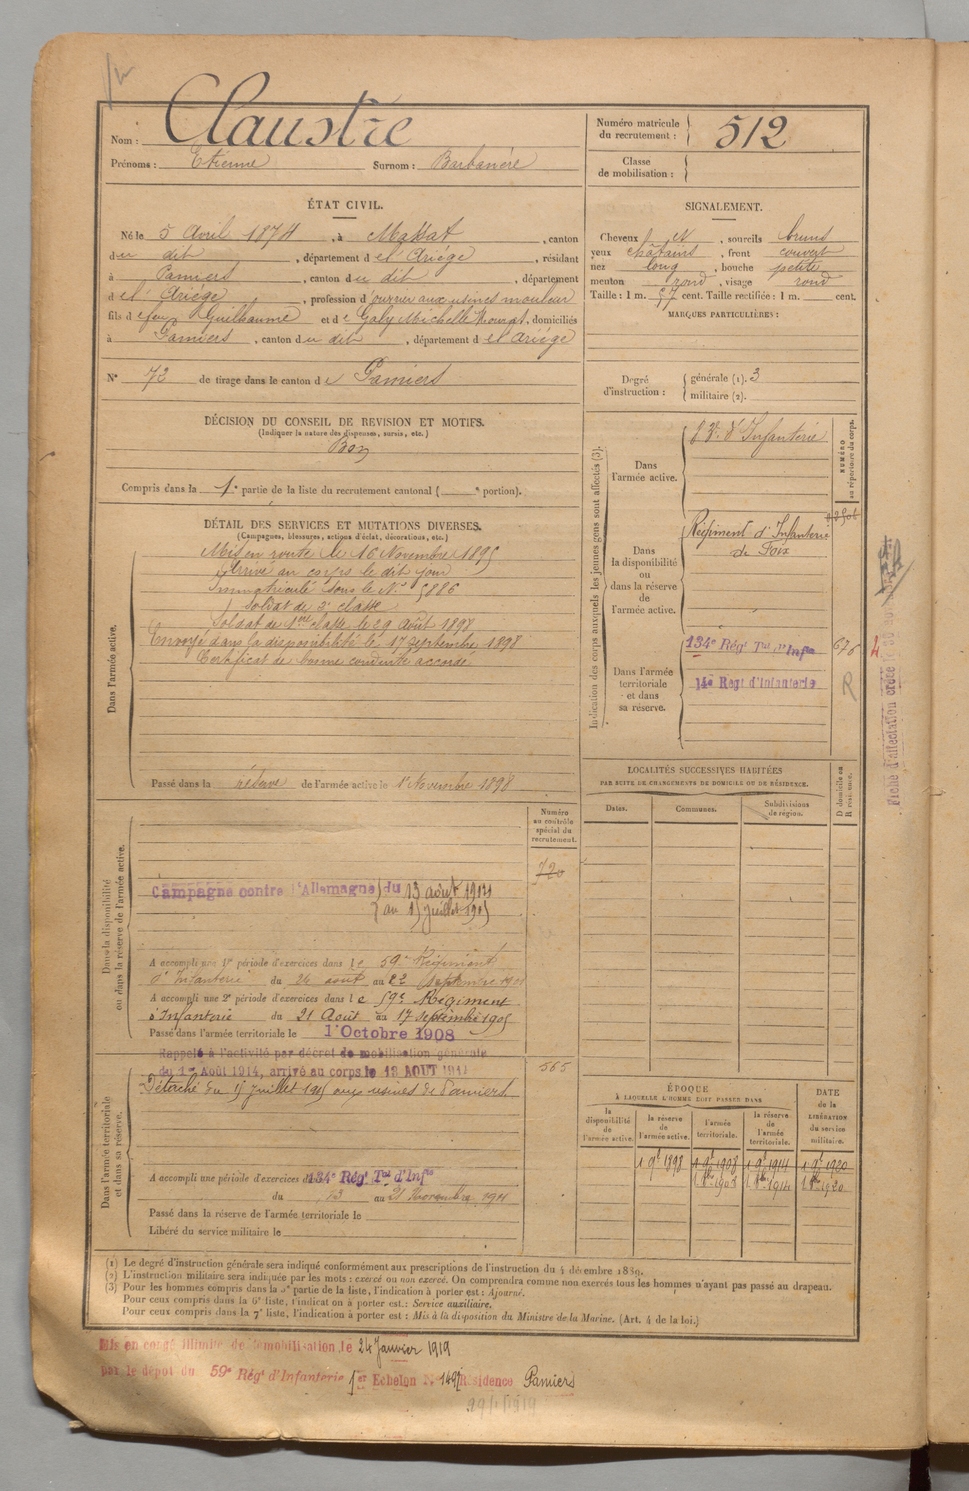 Nom : Claustre
Prénoms : Etienne Surnom : Barbanère
Numéro matricule du recrutement : 512
Classe de mobilisation :
ÉTAT CIVIL.
Né le 5 Avril 1874, à Massat, canton
du dit, département de l'Ariège, résidant
à Pamiers, canton du dit, département
de l'Ariège, profession d'ouvrier aux usines mouleur
fils de feu Guilhaume et de Galy Michelle Mourat, domiciliés
à Pamiers, canton du dit, département de l'Ariège
N° 72 de tirage dans le canton de Pamiers
SIGNALEMENT.
Cheveux et, sourcils bruns
yeux châtains, front couvert
nez long, bouche petite
menton rond, visage rond
Taille : 1 m. 57 cent. Taille rectifiée : 1 m. cent.
MARQUES PARTICULIÈRES :
Degré d'instruction : générale (1). 3
militaire (2).
DÉCISION DU CONSEIL DE REVISION ET MOTIFS.
(Indiquer la nature des dispenses, sursis, etc.)
Bon
Compris dans la 1e partie de la liste du recrutement cantonal ( e portion).
DÉTAIL DES SERVICES ET MUTATIONS DIVERSES.
(Campagnes, blessures, actions d'éclat, décorations, etc.)
Dans l'armée active.
Mis en route le 16 Novembre 1895
Arrivé au corps le dit jour
Immatriculé sous le N° 5886
Soldat de 2e classe
Soldat de 1ere classe le 29 Août 1897
Envoyé dans la disponibilité le 17 Septembre 1898
Certificat de bonne conduite accordé
Passé dans la réserve de l'armée active le 1er Novembre 1898
Indication des corps auxquels les jeunes gens sont affectés (3).
NUMÉRO au répertoire du corps.
Dans l'armée active.
d'Infanterie
Dans la disponibilité ou dans la réserve de l'armée active.
Régiment d'Infanterie
de Foix
Dans l'armée territoriale et dans sa réserve.
134e Régt Tal d'Infie
676
14e Regt d'Infanterie
R
Fiche d'affectation créée le
LOCALITÉS SUCCESSIVES HABITÉES
PAR SUITE DE CHANGEMENTS DE DOMICILE OU DE RÉSIDENCE.
Dates. Communes. Subdivisions de région. D domicile ou R résidence.
Dans la disponibilité ou dans la réserve de l'armée active.
Numéro au contrôle spécial du recrutement.
720
Campagne contre l'Allemagne du 13 août 1914
au 15 juillet 1915
A accompli une 1re période d'exercices dans le 59e Régiment
d'Infanterie du 26 août au 22 Septembre 1901
A accompli une 2e période d'exercices dans le 59e Régiment
d'Infanterie du 21 Août au 17 Septembre 1905
Passé dans l'armée territoriale le 1er Octobre 1908
Dans l'armée territoriale et dans sa réserve.
Rappelé à l'activité par décret de mobilisation générale
du 1er Août 1914, arrivé au corps le 13 AOUT 1914
565
Détaché du 15 juillet 1915 aux usines de Pamiers
A accompli une période d'exercices dans le 134e Régt Tal d'Infie
du 13 au 21 novembre 1911
Passé dans la réserve de l'armée territoriale le
Libéré du service militaire le
ÉPOQUE
À LAQUELLE L'HOMME DOIT PASSER DANS
la disponibilité de l'armée active. la réserve de l'armée active. l'armée territoriale. la réserve de l'armée territoriale.
DATE de la LIBÉRATION du service militaire.
1 9e 1898 1 9e 1908 1 9e 1914 1 9e 1920
1 8bre 1908 1 8bre 1914 1 8bre 1920
(1) Le degré d'instruction générale sera indiqué conformément aux prescriptions de l'instruction du 4 décembre 1889.
(2) L'instruction militaire sera indiquée par les mots : exercé ou non exercé. On comprendra comme non exercés tous les hommes n'ayant pas passé au drapeau.
(3) Pour les hommes compris dans la 5e partie de la liste, l'indication à porter est : Ajourné.
Pour ceux compris dans la 6e liste, l'indication à porter est : Service auxiliaire.
Pour ceux compris dans la 7e liste, l'indication à porter est : Mis à la disposition du Ministre de la Marine. (Art. 4 de la loi.)
Mis en congé illimité de démobilisation le 24 Janvier 1919
par le dépôt du 59e Régt d'Infanterie 1er Echelon N° 1497 Résidence Pamiers